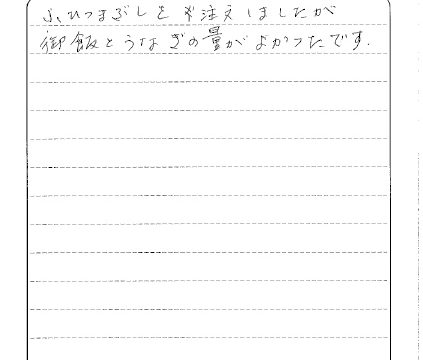 ふ、ひつまぶしを注文しましたが
御飯とうなぎの量がよかったです.